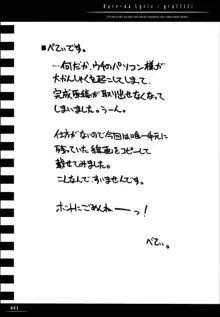 Bare-na Lyric: graffiti
■ぺてぃです。
…何だか、ウチのパソコン様が
大かんしゃくを起こしてしまって
完成原稿が取り出せなくなって
しまいました。うーん。
仕方がないので今回は唯一手元に
残っていた絵画をコピーして
載せてみました。
こんなんで、すいませんです。
ホントにごみんねーっ!
ぺてぃ。
033